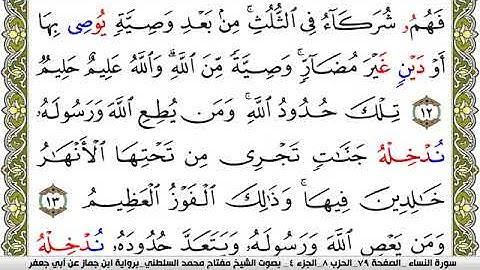 فَهُمُۥ شُرَكَآءُ فِى ٱلثُّلُثِۚ مِنۢ بَعْدِ وَصِيَّةٍ يُوصِى بِهَا
أَوْ دَيْنٍ غَيْرَ مُضَآرٍّۚ وَصِيَّةً مِّنَ ٱللَّهِۗ وَٱللَّهُ عَلِيمٌ حَلِيمٌ
١٢ تِلْكَ حُدُودُ ٱللَّهِۚ وَمَن يُطِعِ ٱللَّهَ وَرَسُولَهُۥ
نُدْخِلْهُ جَنَّٰتٍ تَجْرِى مِن تَحْتِهَا ٱلْأَنْهَٰرُ
خَٰلِدِينَ فِيهَاۚ وَذَٰلِكَ ٱلْفَوْزُ ٱلْعَظِيمُ ١٣
وَمَن يَعْصِ ٱللَّهَ وَرَسُولَهُۥ وَيَتَعَدَّ حُدُودَهُۥ نُدْخِلْهُ
سورة النساء _الصفحة ٧٩_ الحزب ٨_ الجزء ٤_ بصوت الشيخ مفتاح محمد السلطني_برواية ابن جماز عن أبي جعفر